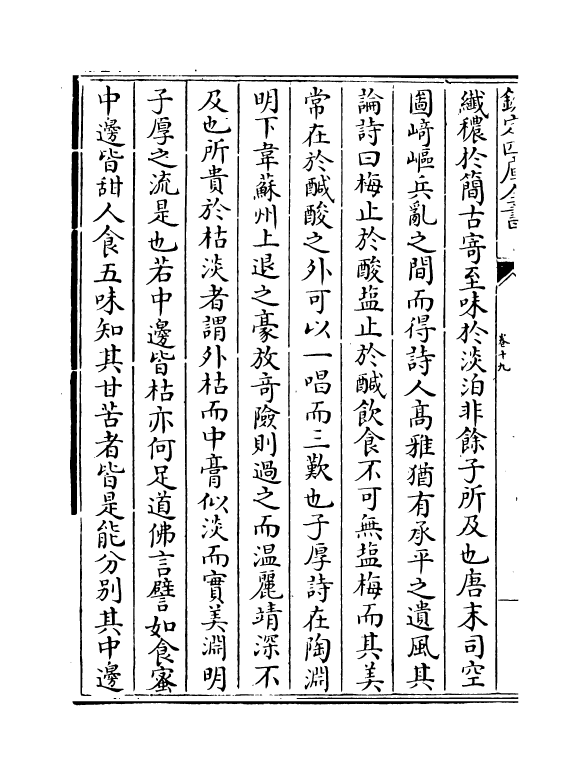 欽定四庫全書
卷十九
纎穠於簡古寄至味於淡泊非餘子所及也唐末司空
圖﨑嶇兵亂之間而得詩人髙雅猶有承平之遺風其
論詩曰梅止於酸盐止於醎飲食不可無盐梅而其美
常在於醎酸之外可以一唱而三歎也子厚詩在陶淵
明下韋蘇州上退之豪放竒險則過之而温麗靖深不
及也所貴於枯淡者謂外枯而中膏似淡而實美淵明
子厚之流是也若中邊皆枯亦何足道佛言譬如食蜜
中邊皆甜人食五味知其甘苦者皆是能分别其中邊